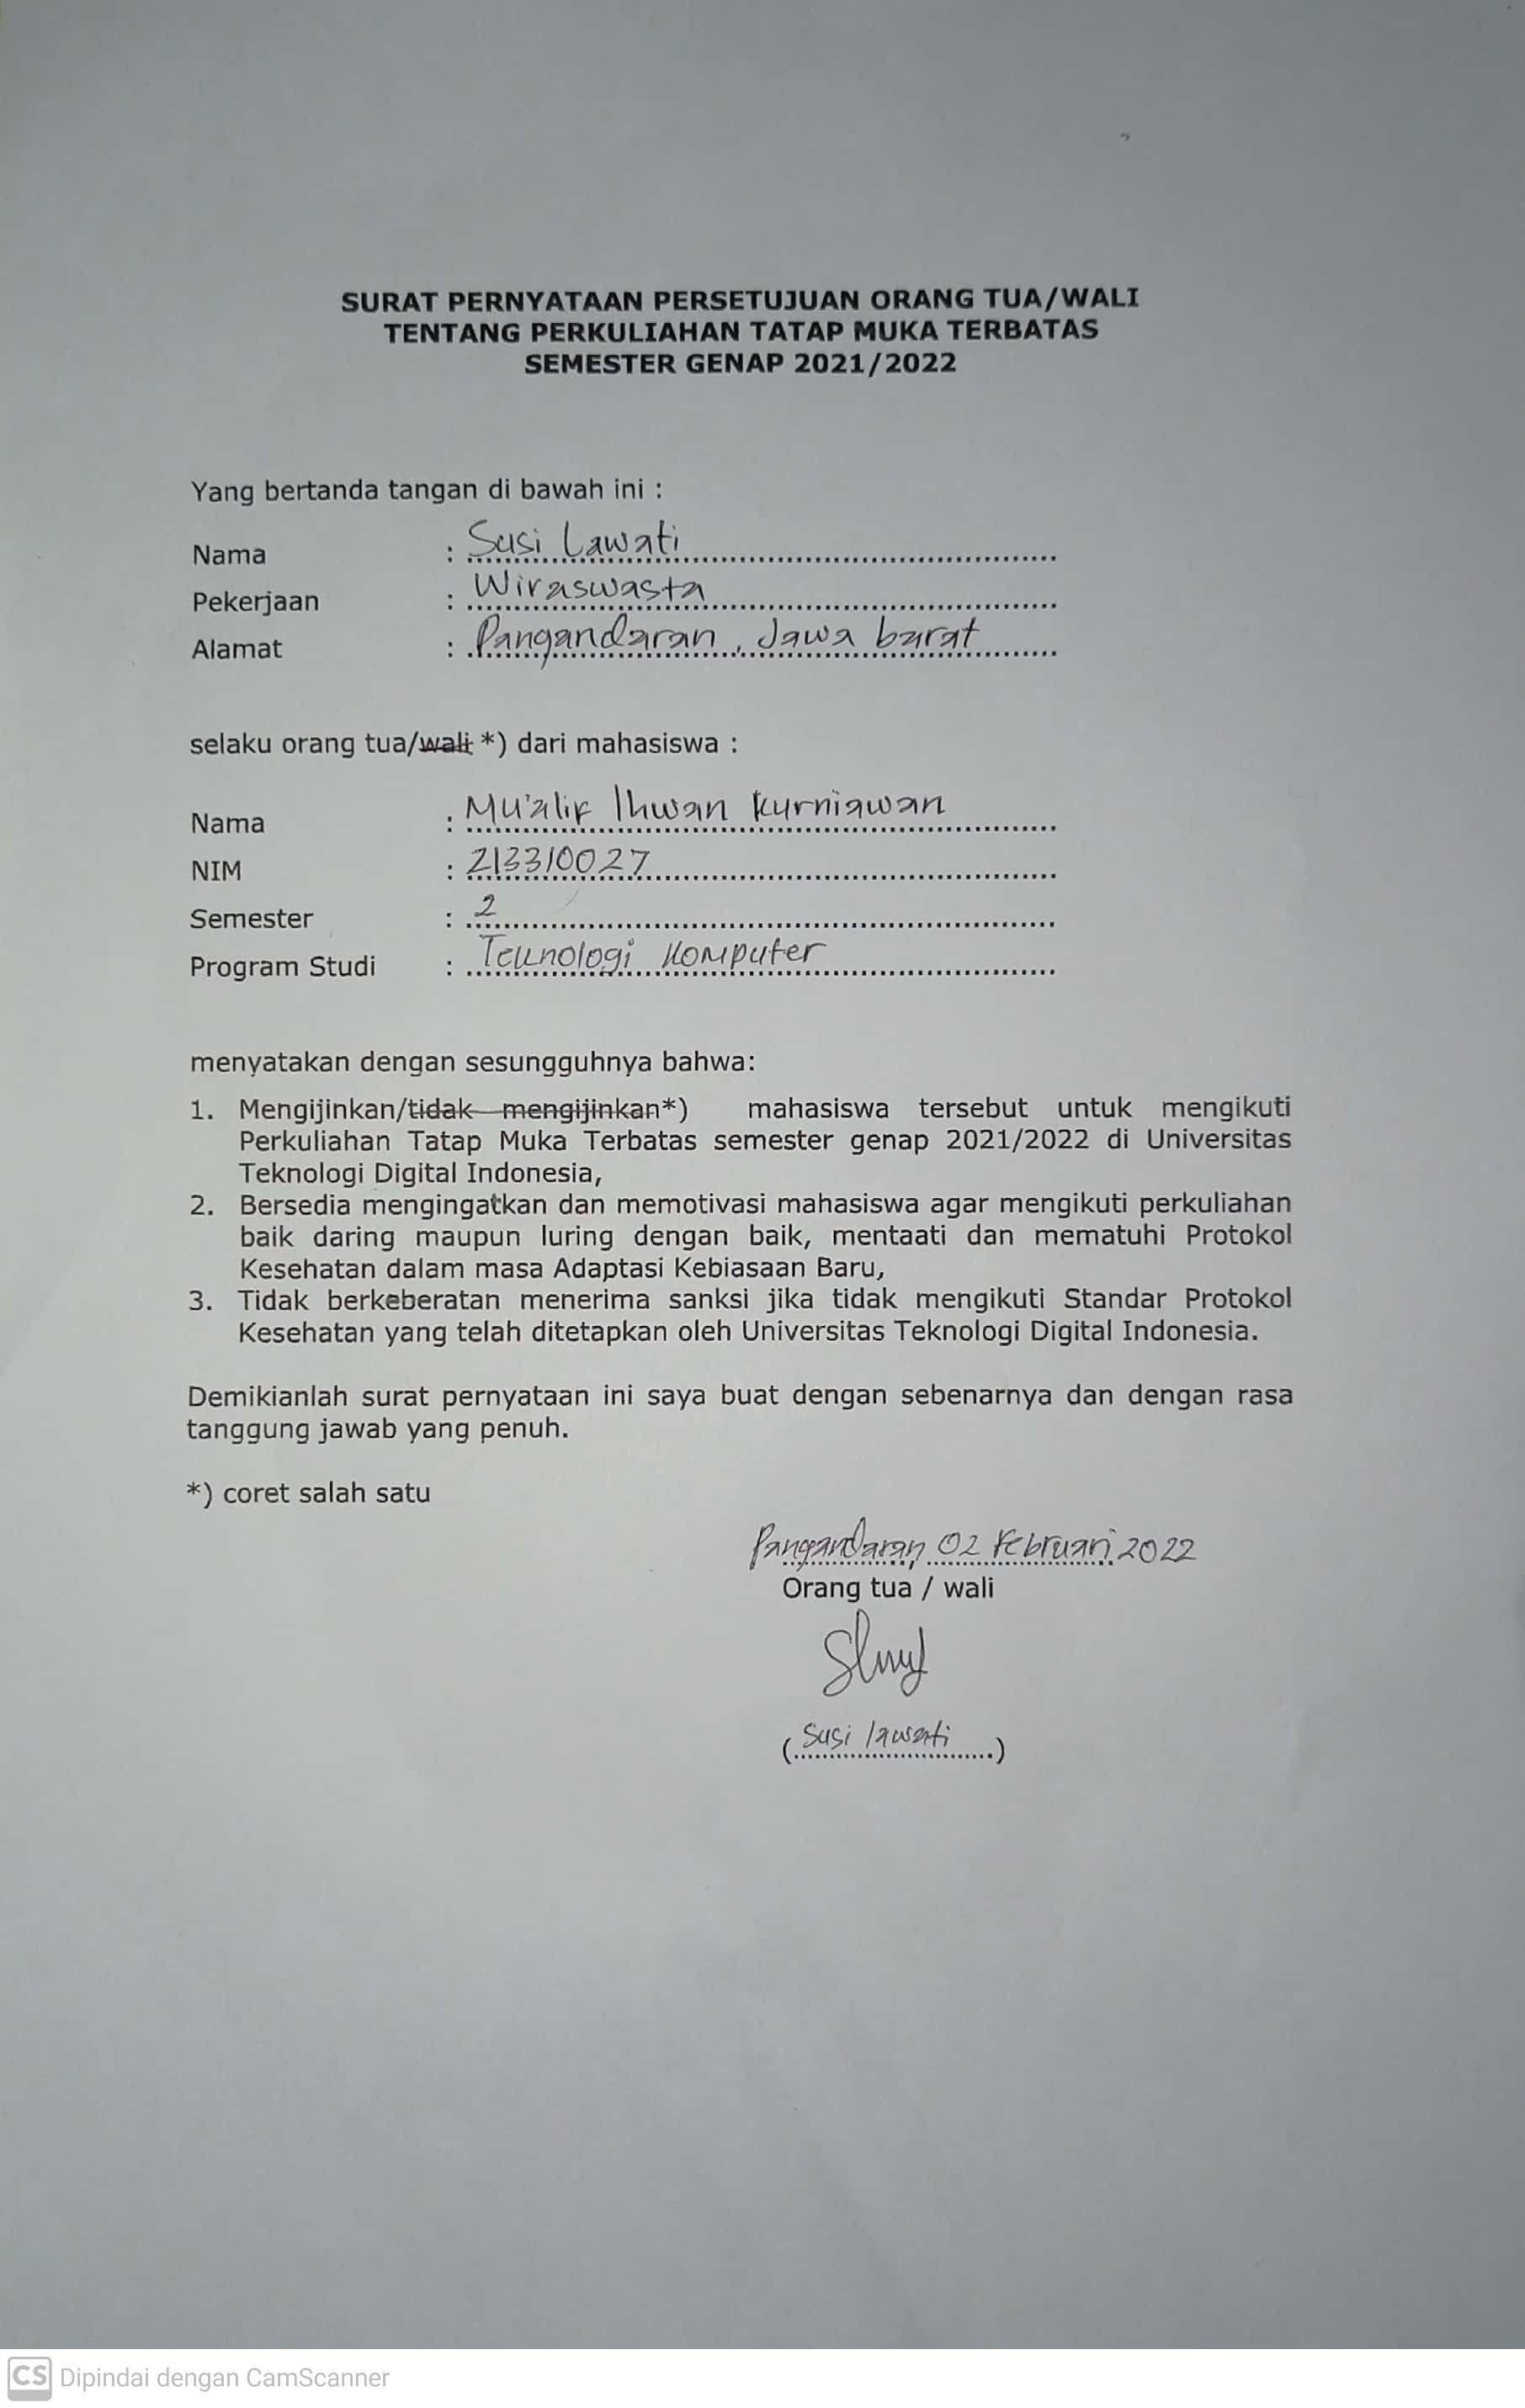 SURAT PERNYATAAN PERSETUJUAN ORANG TUA/WALI
TENTANG PERKULIAHAN TATAP MUKA TERBATAS
SEMESTER GENAP 2021/2022
Yang bertanda tangan di bawah ini :
Nama : Susi Lawati
Pekerjaan : Wiraswasta
Alamat : Pangandaran, Jawa barat
selaku orang tua/wali *) dari mahasiswa :
Nama : Mu'alif Ihwan Kurniawan
NIM : 213310027
Semester : 2
Program Studi : Teknologi Komputer
menyatakan dengan sesungguhnya bahwa:
1. Mengijinkan/tidak mengijinkan*) mahasiswa tersebut untuk mengikuti
Perkuliahan Tatap Muka Terbatas semester genap 2021/2022 di Universitas
Teknologi Digital Indonesia,
2. Bersedia mengingatkan dan memotivasi mahasiswa agar mengikuti perkuliahan
baik daring maupun luring dengan baik, mentaati dan mematuhi Protokol
Kesehatan dalam masa Adaptasi Kebiasaan Baru,
3. Tidak berkeberatan menerima sanksi jika tidak mengikuti Standar Protokol
Kesehatan yang telah ditetapkan oleh Universitas Teknologi Digital Indonesia.
Demikianlah surat pernyataan ini saya buat dengan sebenarnya dan dengan rasa
tanggung jawab yang penuh.
*) coret salah satu
Pangandaran, 02 Februari 2022
Orang tua / wali
(Susi lawati)
CS Dipindai dengan CamScanner